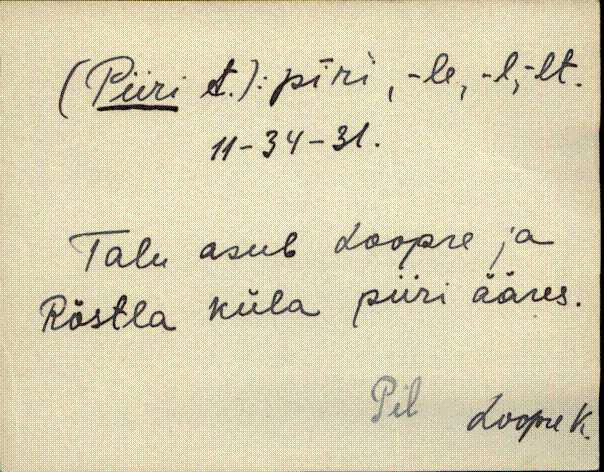 (Piiri t.): pīri, -le, -l, -lt.
11-34-31.
Talu asub Loopre ja
Röstla küla piiri ääres.
Pil Loopre k.